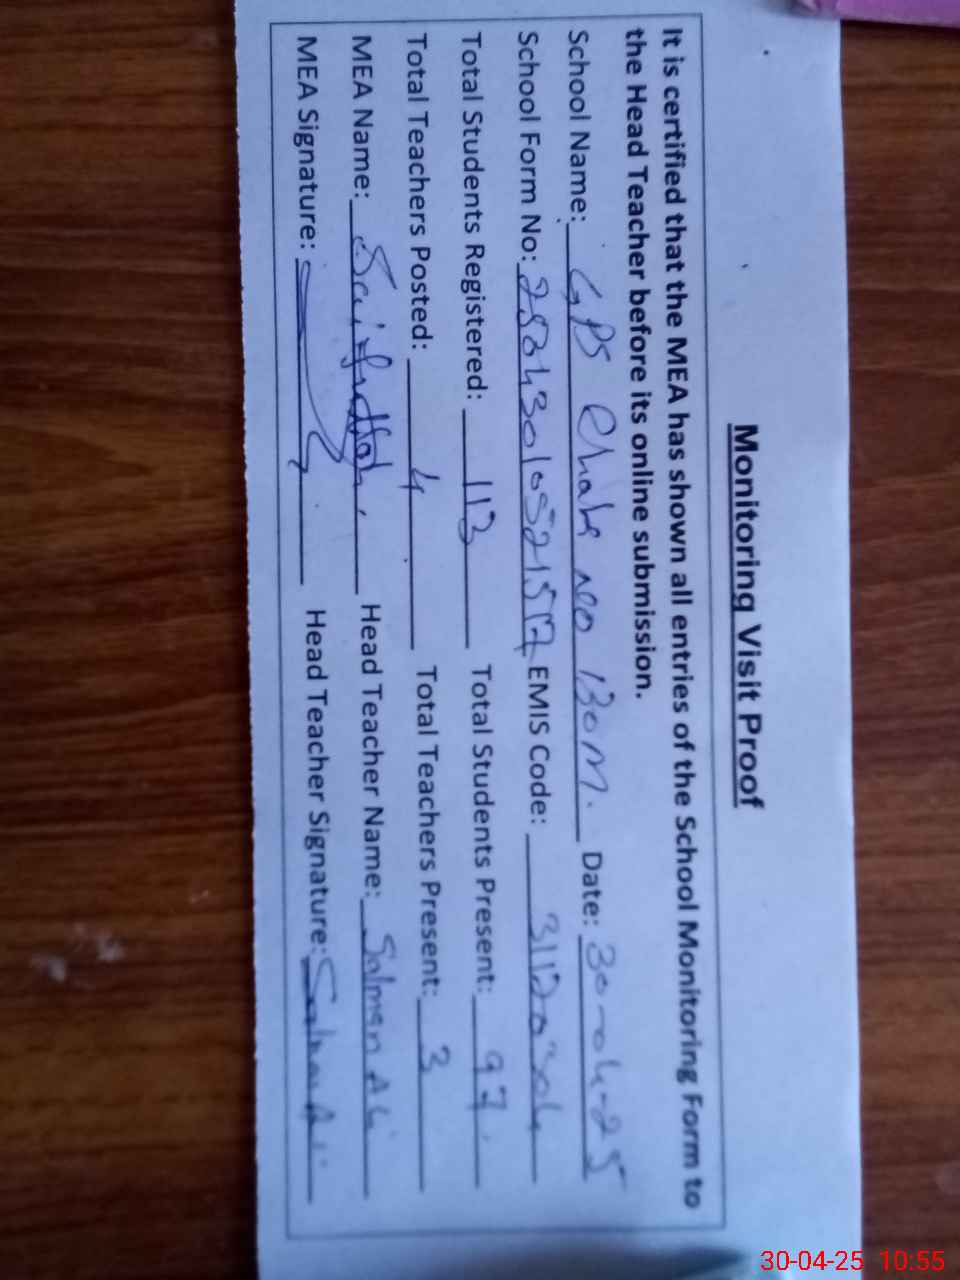 Monitoring Visit Proof
It is certified that the MEA has shown all entries of the School Monitoring Form to
the Head Teacher before its online submission.
School Name: GPS Chak no 130M. Date: 30-04-25
School Form No: EMIS Code:
Total Students Registered: 113 Total Students Present: 97
Total Teachers Posted: 4 Total Teachers Present: 3
MEA Name: Saifullah Head Teacher Name: Salman Ali
MEA Signature: Head Teacher Signature: Salman Ali
30-04-25 10:55